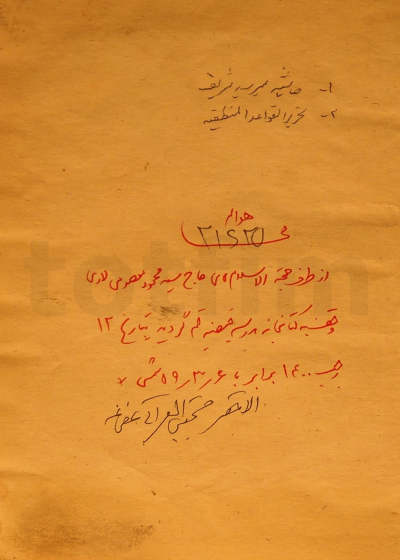 ۱- حاشیه میرسید شریف
۲- تحریر القواعد المنطقیه
هوالـ
از طرف حجة الاسلام حاج سید محمود معصومی لاری
وقف کتابخانه مدرسه فیضیه قم گردید بتاریخ ۱۲
رجب ۱۴۰۰ برابر با ۳٫۶٫۵۹ شمسی
الاحقر مجتبی العراقی عفی عنه